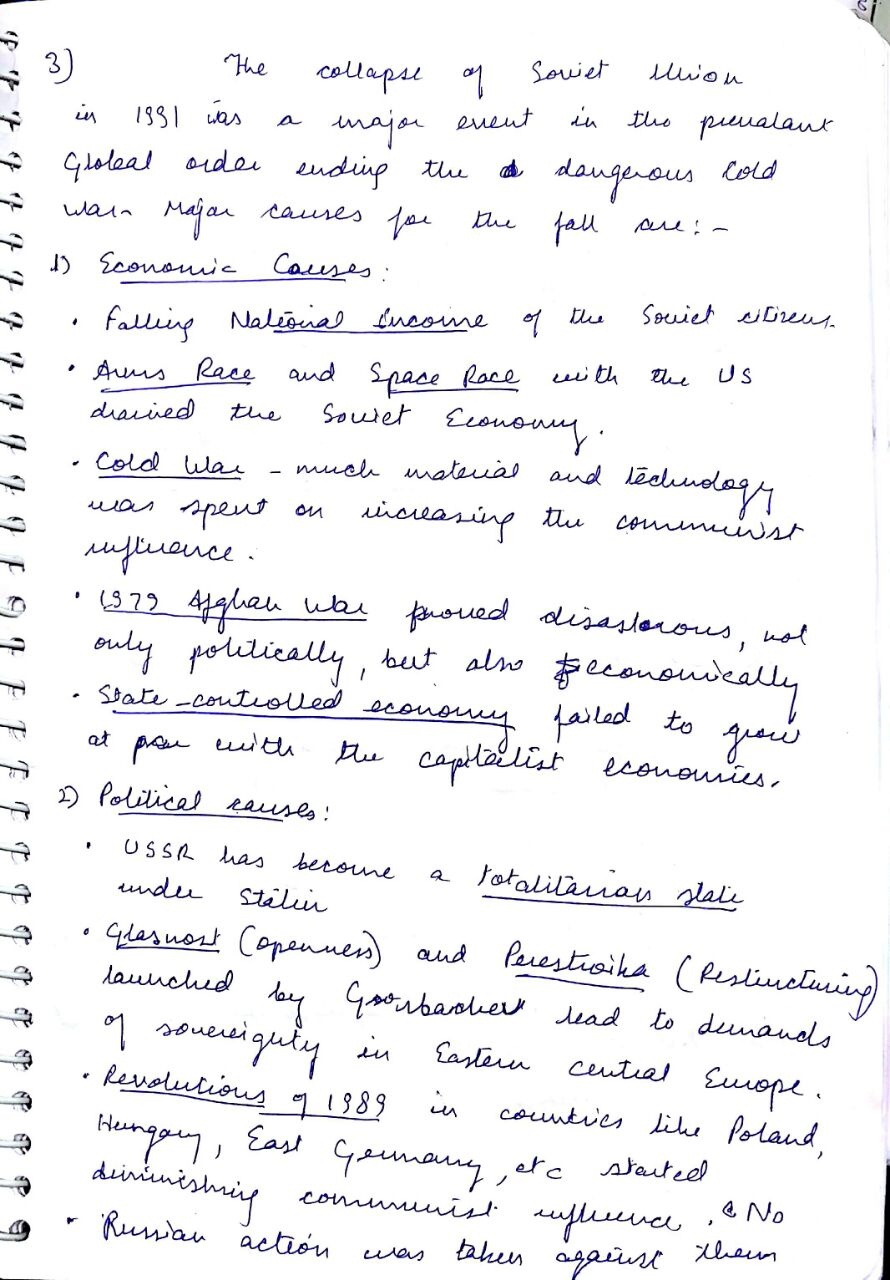 3) The collapse of Soviet Union
in 1991 was a major event in the prevalant
Global order ending the dangerous Cold
War. Major causes for the fall are:-
1) Economic Causes:
• Falling National Income of the Soviet citizens.
• Arms Race and Space Race with the US
drained the Soviet Economy.
• Cold War - much material and technology
was spent on increasing the communist
influence.
• 1979 Afghan War proved disastorous, not
only politically, but also economically
• State-controlled economy failed to grow
at par with the capitalist economies.
2) Political causes:
• USSR has become a totalitarian state
under Stalin
• Glasnost (openness) and Perestroika (Restructuring)
launched by lead to demands
of sovereignty in Eastern central Europe.
• Revolutions of 1989 in countries like Poland,
Hungary, East Germany, etc started
diminishing communist influence. No
• Russian action was taken against them